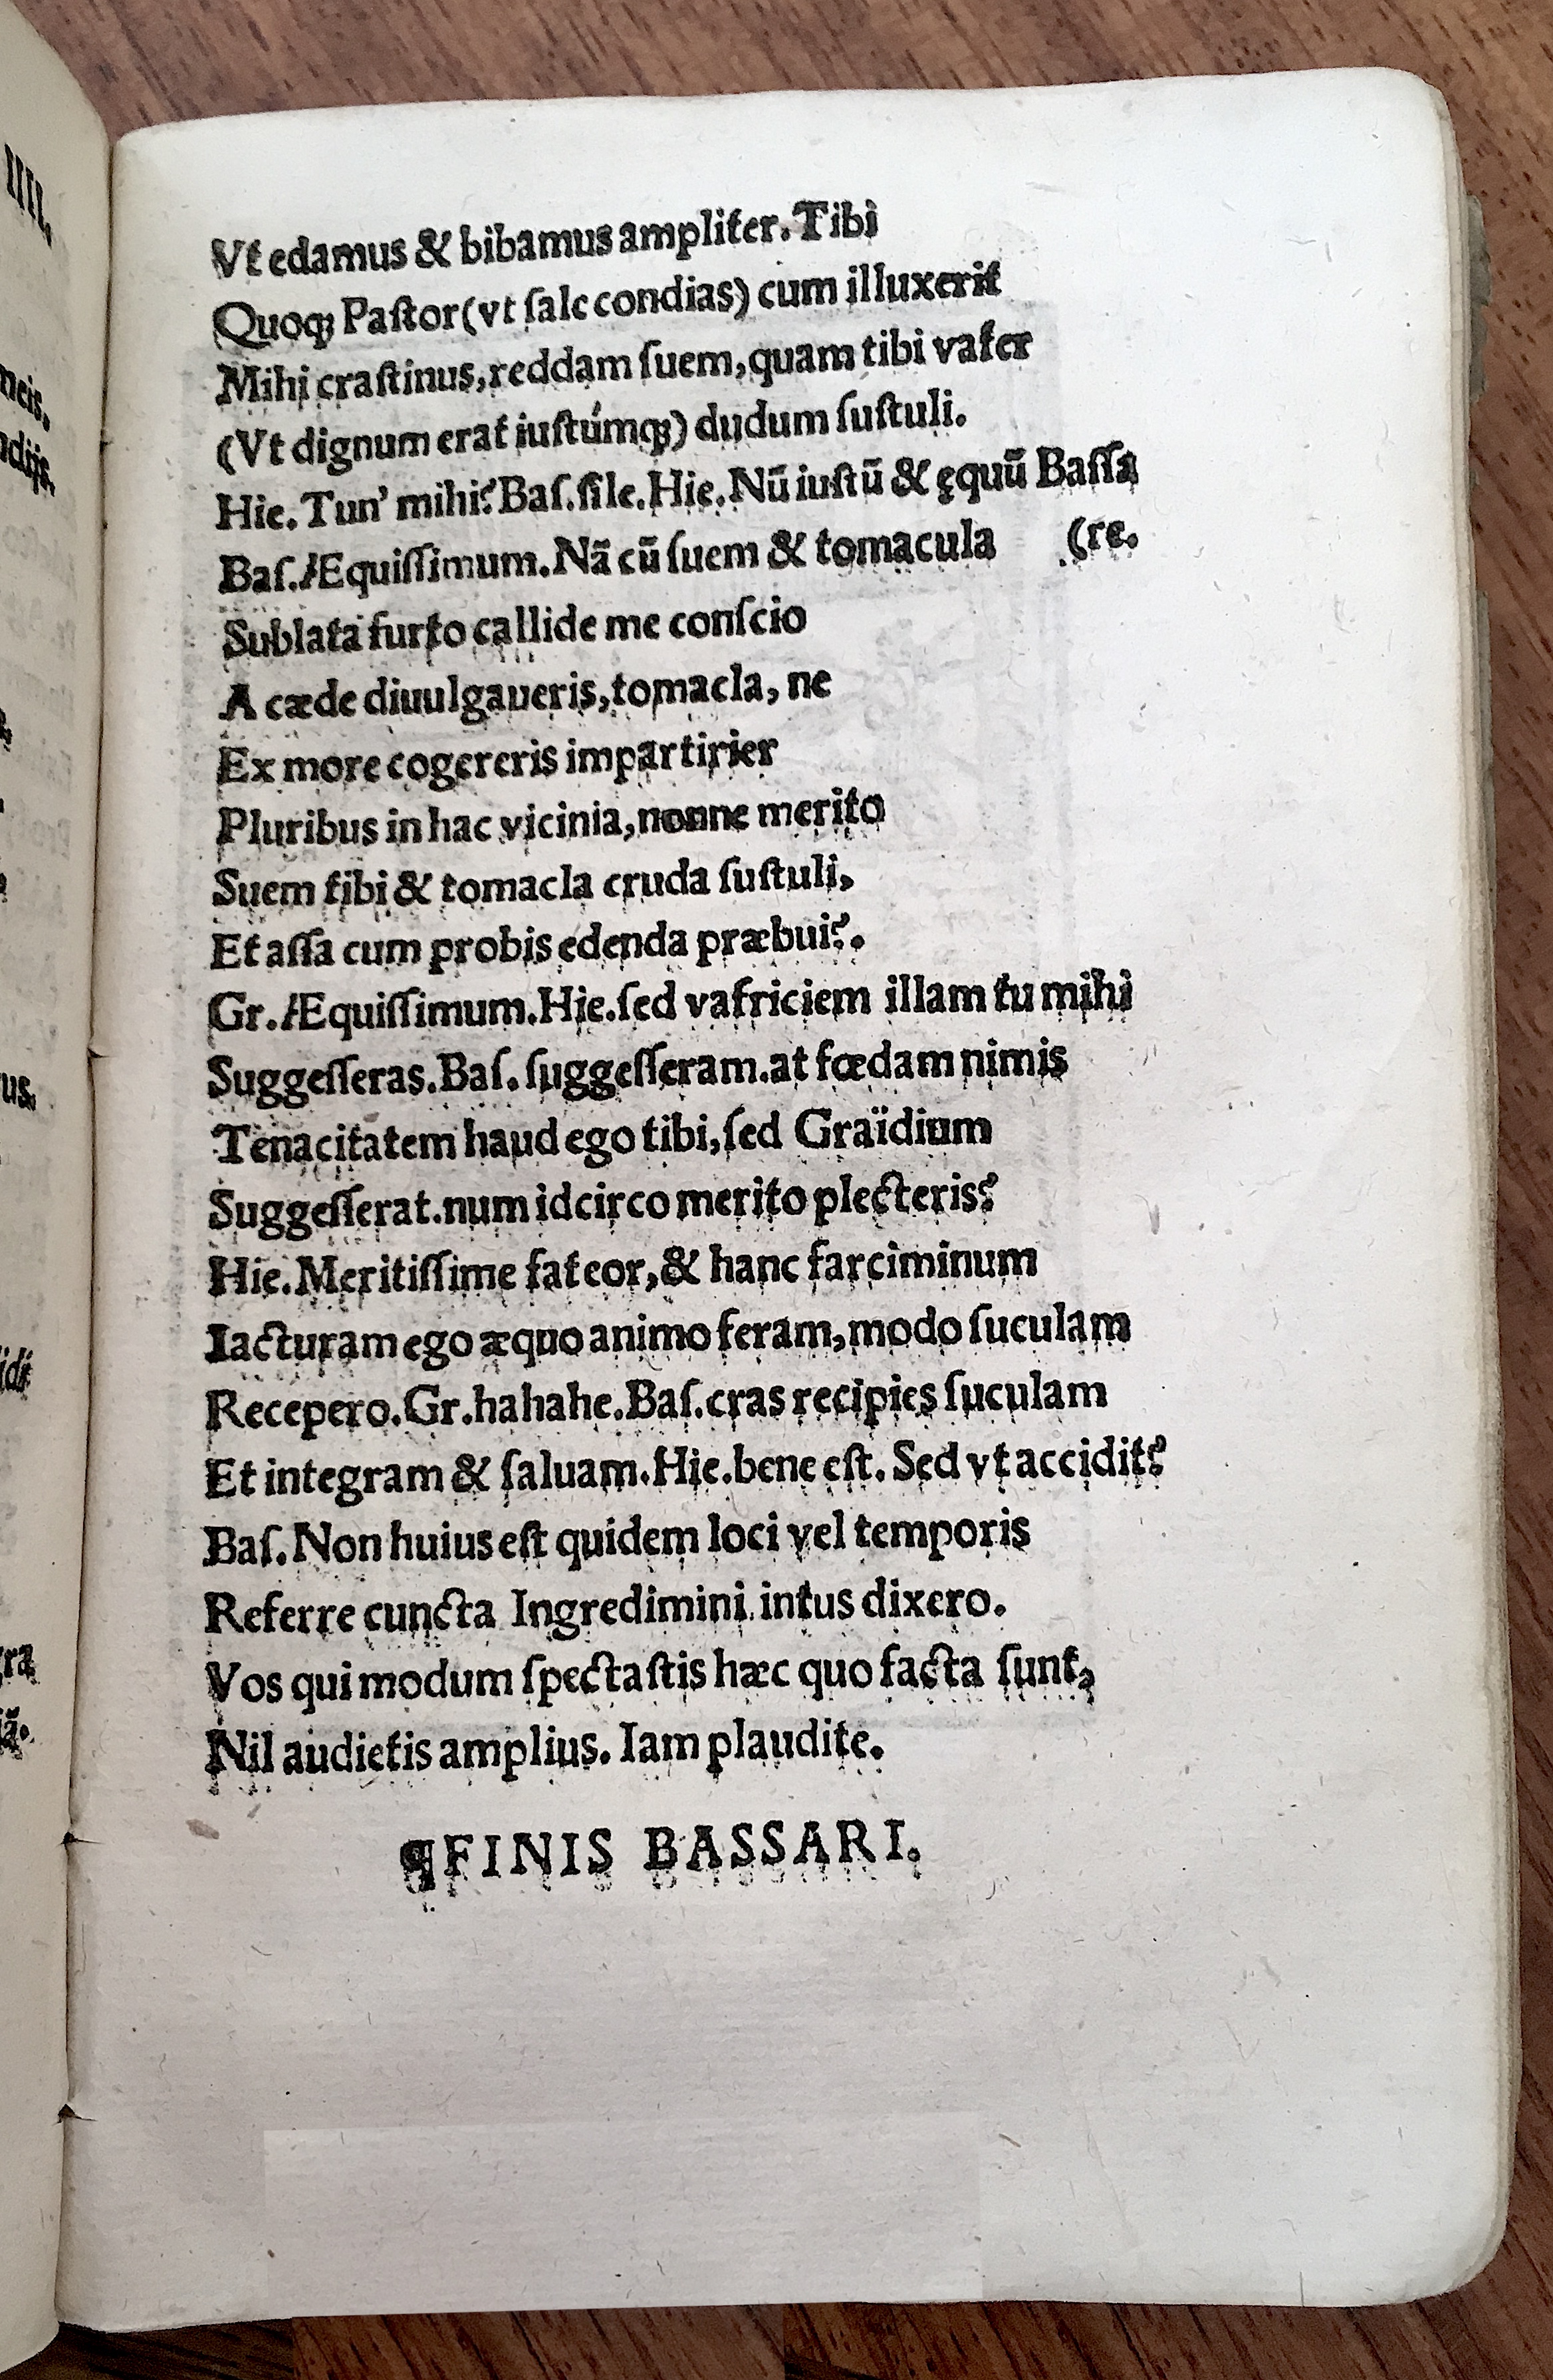 IIII.
neis,
ndijs.
us.
idi
gra
iã.
Vt edamus & bibamus ampliter. Tibi
Quoqꝫ Paſtor (vt ſale condias) cum illuxerit
Mihi craſtinus, reddam ſuem, quam tibi vafer
(Vt dignum erat iuſtúmqꝫ) dudum ſuſtuli.
Hie. Tun' mihi? Baſ. ſile. Hie. Nũ iuſtũ & ęquũ Baſſa
Baſ. Æquiſſimum. Nã cũ ſuem & tomacula (re.
Sublata furto callide me conſcio
A cæde diuulgaueris, tomacla, ne
Ex more cogereris impartirier
Pluribus in hac vicinia, nonne merito
Suem tibi & tomacla cruda ſuſtuli,
Et aſſa cum probis edenda præbui?.
Gr. Æquiſſimum. Hie. ſed vafriciem illam tu mihi
Suggeſſeras. Baſ. ſuggeſſeram. at fœdam nimis
Tenacitatem haud ego tibi, ſed Graïdium
Suggeſſerat. num idcirco merito plecteris?
Hie. Meritiſſime fateor, & hanc farciminum
Iacturam ego æquo animo feram, modo ſuculam
Recepero. Gr. hahahe. Baſ. cras recipies ſuculam
Et integram & ſaluam. Hie. bene eſt. Sed vt accidit?
Baſ. Non huius eſt quidem loci vel temporis
Referre cuncta Ingredimini. intus dixero.
Vos qui modum ſpectaſtis hæc quo facta ſunt,
Nil audietis amplius. Iam plaudite.
¶FINIS BASSARI.